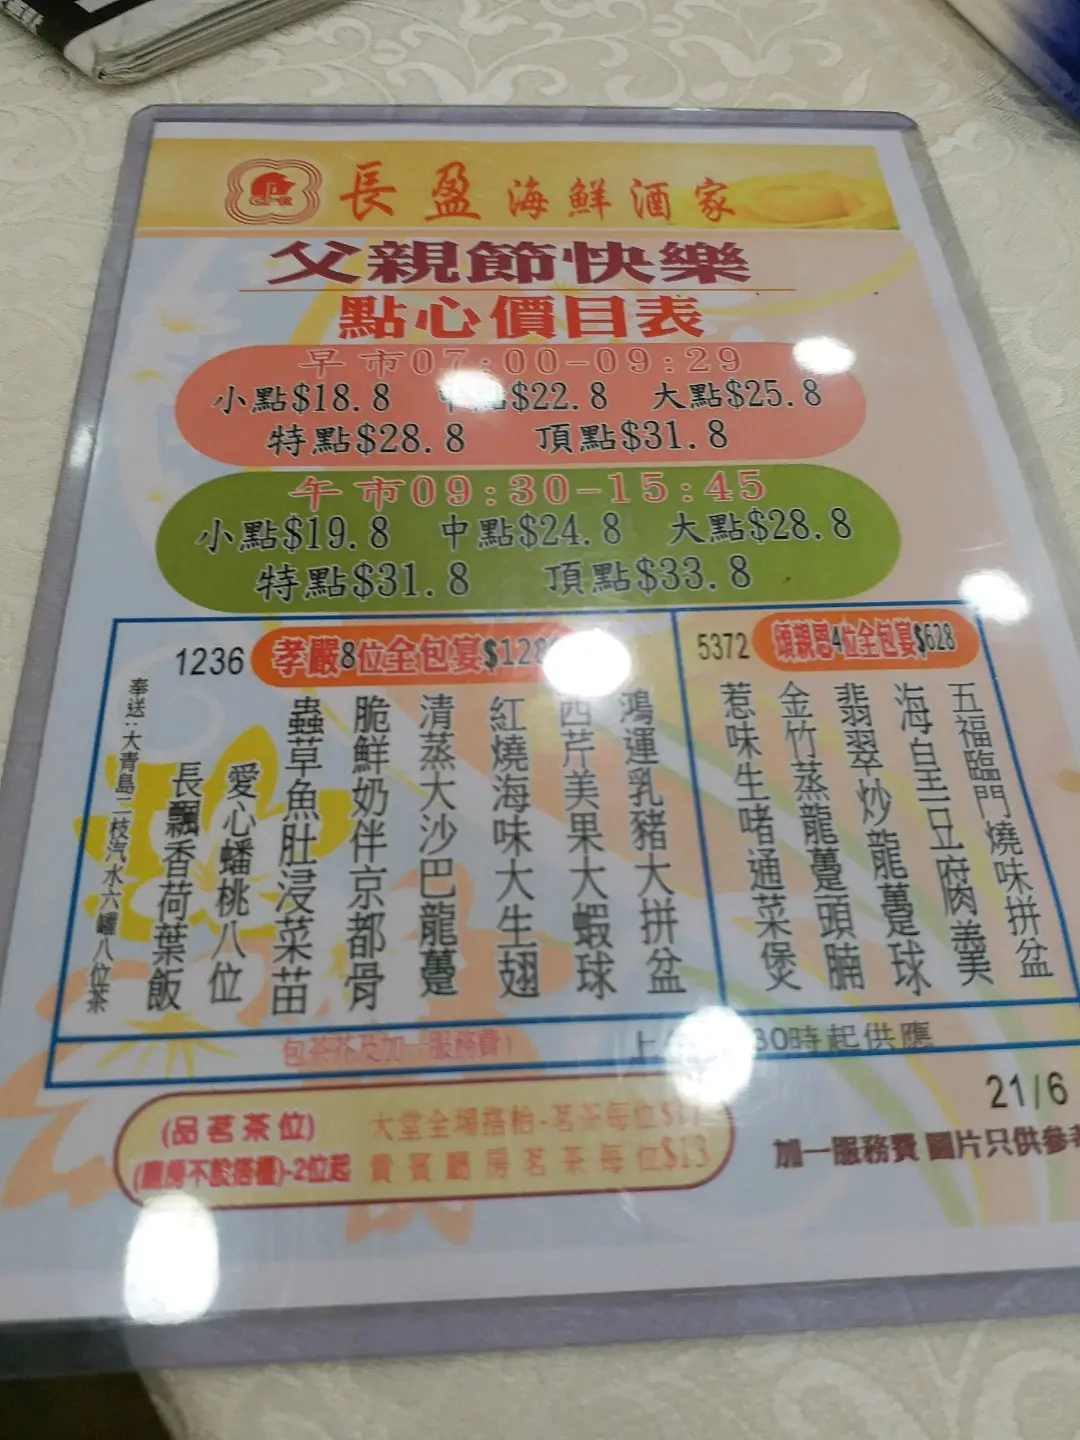 長盈海鮮酒家
父親節快樂
點心價目表
早市07:00-09:29
小點$18.8 中點$22.8 大點$25.8
特點$28.8 頂點$31.8
午市09:30-15:45
小點$19.8 中點$24.8 大點$28.8
特點$31.8 頂點$33.8
1236 孝嚴8位全包宴$128
鴻運乳豬大拼盆
西芹美果大蝦球
紅燒海味大生翅
清蒸大沙巴龍躉
脆鮮奶伴京都骨
蟲草魚肚浸菜苗
愛心蟠桃八位
長飄香荷葉飯
奉送:大青島二枝汽水六罐八位茶
5372 頌親恩4位全包宴$628
五福臨門燒味拼盆
海皇豆腐肉羹
翡翠炒龍躉球
金竹蒸龍躉頭腩
惹味生啫通菜煲
包茶芥及加一服務費)
上 30時起供應
(品茗茶位) 大堂全場搭枱-茗茶每位$17
-2位起 貴賓廳房茗茶每位$13
21/6
加一服務費 圖片只供參考